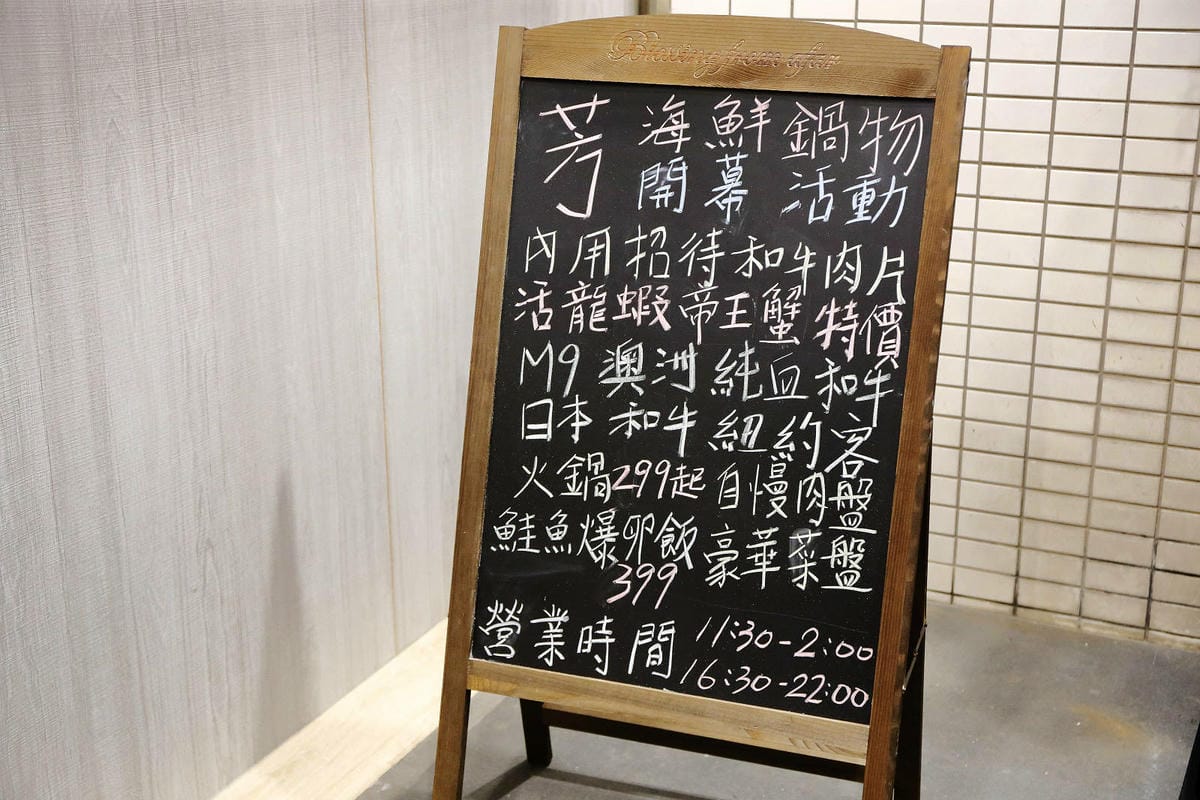 Blessing from afar
芳 海鮮 鍋物
開幕 活動
內用招待和牛肉片
活龍蝦帝王蟹特價
M9 澳洲純血和牛
日本和牛紐約客
火鍋299起 自慢肉盤
鮭魚爆卵飯 豪華菜盤
399
營業時間 11:30-2:00
16:30-22:00